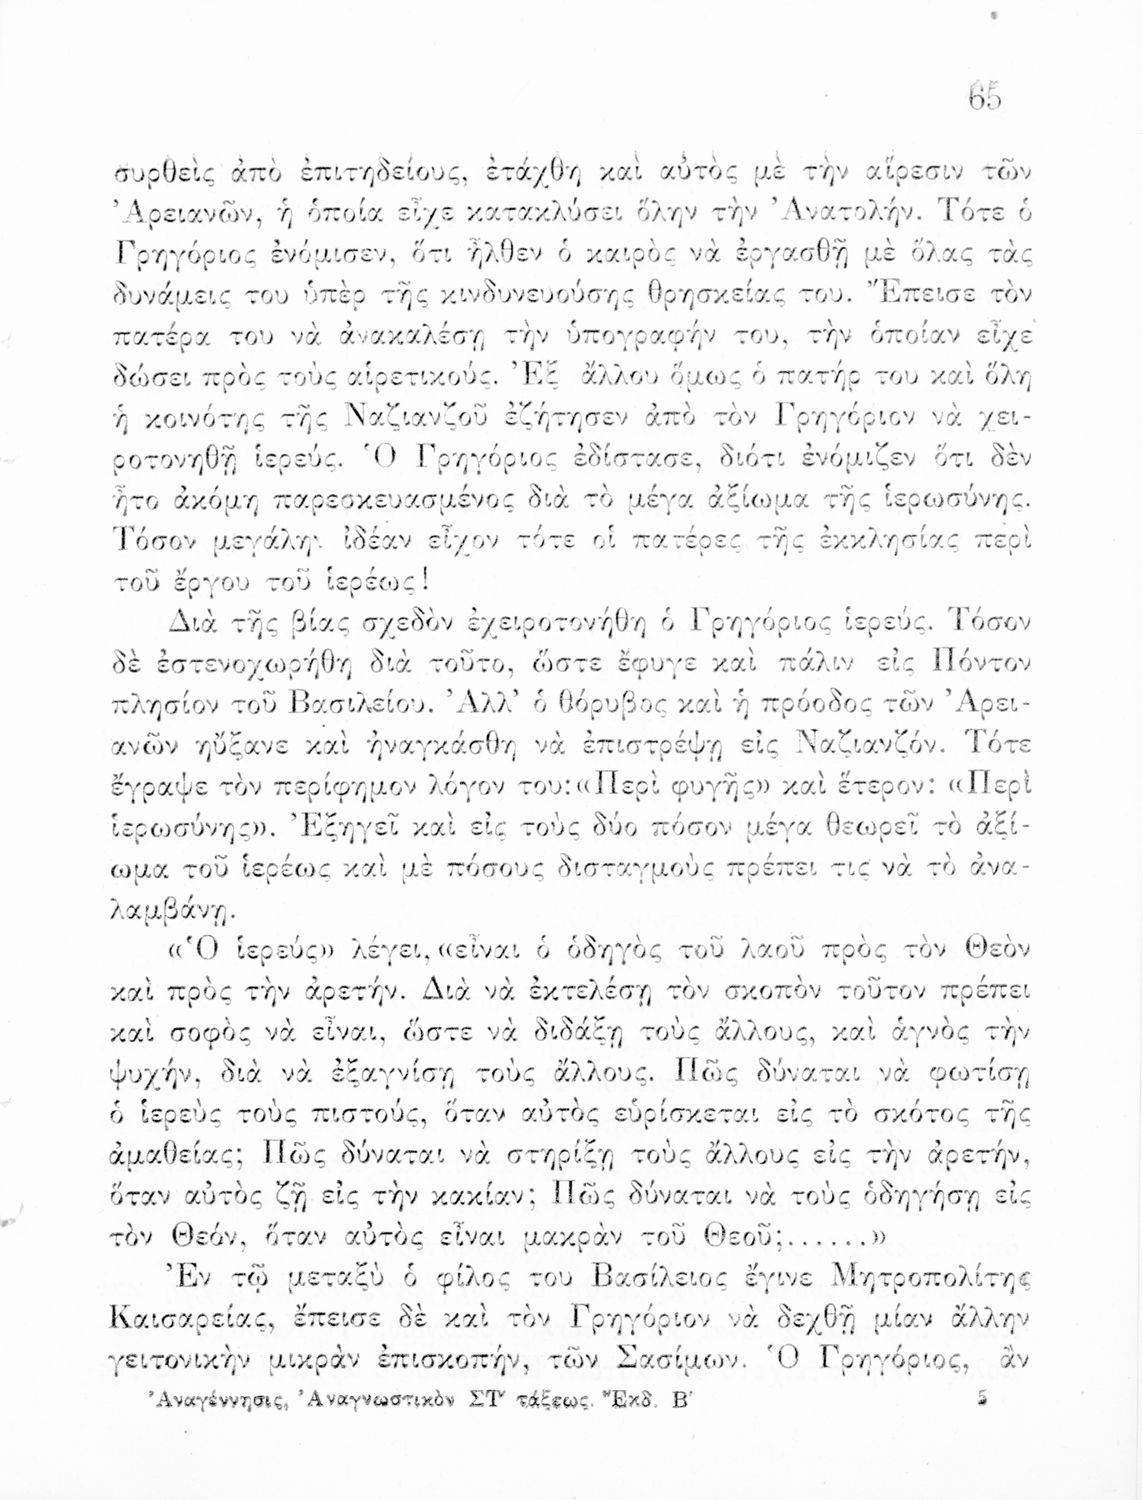 65
συρθεὶς ἀπὸ ἐπιτηδείους, ἐτάχθη καὶ αὐτὸς μὲ τὴν αἵρεσιν τῶν
Ἀρειανῶν, ἡ ὁποία εἶχε κατακλύσει ὅλην τὴν Ἀνατολήν. Τότε ὁ
Γρηγόριος ἐνόμισεν, ὅτι ἦλθεν ὁ καιρὸς νὰ ἐργασθῇ μὲ ὅλας τὰς
δυνάμεις του ὑπὲρ τῆς κινδυνευούσης θρησκείας του. Ἔπεισε τὸν
πατέρα του νὰ ἀνακαλέσῃ τὴν ὑπογραφήν του, τὴν ὁποίαν εἶχε
δώσει πρὸς τοὺς αἱρετικούς. Ἐξ ἄλλου ὅμως ὁ πατήρ του καὶ ὅλη
ἡ κοινότης τῆς Ναζιανζοῦ ἐζήτησεν ἀπὸ τὸν Γρηγόριον νὰ χει-
ροτονηθῇ ἱερεύς. Ὁ Γρηγόριος ἐδίστασε, διότι ἐνόμιζεν ὅτι δὲν
ἦτο ἀκόμη παρεσκευασμένος διὰ τὸ μέγα ἀξίωμα τῆς ἱερωσύνης.
Τόσον μεγάλην ἰδέαν εἶχον τότε οἱ πατέρες τῆς ἐκκλησίας περὶ
τοῦ ἔργου τοῦ ἱερέως!
Διὰ τῆς βίας σχεδὸν ἐχειροτονήθη ὁ Γρηγόριος ἱερεύς. Τόσον
δὲ ἐστενοχωρήθη διὰ τοῦτο, ὥστε ἔφυγε καὶ πάλιν εἰς Πόντον
πλησίον τοῦ Βασιλείου. Ἀλλ’ ὁ θόρυβος καὶ ἡ πρόοδος τῶν Ἀρει-
ανῶν ηὔξανε καὶ ἠναγκάσθη νὰ ἐπιστρέψῃ εἰς Ναζιανζόν. Τότε
ἔγραψε τὸν περίφημον λόγον του: «Περὶ φυγῆς» καὶ ἕτερον: «Περὶ
ἱερωσύνης». Ἐξηγεῖ καὶ εἰς τοὺς δύο πόσον μέγα θεωρεῖ τὸ ἀξί-
ωμα τοῦ ἱερέως καὶ μὲ πόσους δισταγμοὺς πρέπει τις νὰ τὸ ἀνα-
λαμβάνῃ.
«Ὁ ἱερεύς» λέγει, «εἶναι ὁ ὁδηγὸς τοῦ λαοῦ πρὸς τὸν Θεὸν
καὶ πρὸς τὴν ἀρετήν. Διὰ νὰ ἐκτελέσῃ τὸν σκοπὸν τοῦτον πρέπει
καὶ σοφὸς νὰ εἶναι, ὥστε νὰ διδάξῃ τοὺς ἄλλους, καὶ ἁγνὸς τὴν
ψυχήν, διὰ νὰ ἐξαγνίσῃ τοὺς ἄλλους. Πῶς δύναται νὰ φωτίσῃ
ὁ ἱερεὺς τοὺς πιστούς, ὅταν αὐτὸς εὑρίσκεται εἰς τὸ σκότος τῆς
ἀμαθείας; Πῶς δύναται νὰ στηρίξῃ τοὺς ἄλλους εἰς τὴν ἀρετήν,
ὅταν αὐτὸς ζῇ εἰς τὴν κακίαν; Πῶς δύναται νὰ τοὺς ὁδηγήσῃ εἰς
τὸν Θεόν, ὅταν αὐτὸς εἶναι μακρὰν τοῦ Θεοῦ;......»
Ἐν τῷ μεταξὺ ὁ φίλος του Βασίλειος ἔγινε Μητροπολίτης
Καισαρείας, ἔπεισε δὲ καὶ τὸν Γρηγόριον νὰ δεχθῇ μίαν ἄλλην
γειτονικὴν μικρὰν ἐπισκοπήν, τῶν Σασίμων. Ὁ Γρηγόριος, ἂν
Ἀναγέννησις, Ἀναγνωστικὸν ΣΤ′ τάξεως. Ἔκδ. Β′ 5